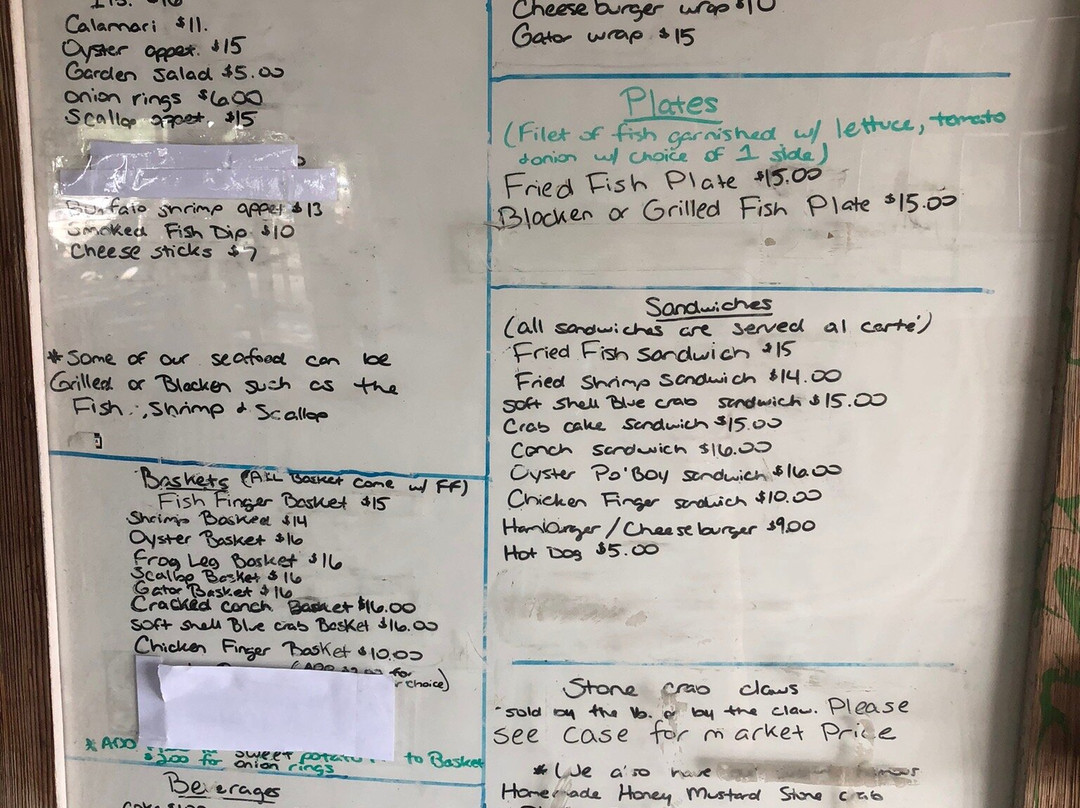 Calamari $11.
Oyster appet. $15
Garden Salad $5.00
onion rings $6.00
Scallop appet. $15
Buffalo shrimp appet $13
Smoked Fish Dip $10
Cheese sticks $7
* Some of our seafood can be
Grilled or Blacken such as the
Fish, Shrimp & Scallop
Baskets (All Basket come w/ FF)
Fish Finger Basket $15
Shrimp Basked $14
Oyster Basket $16
Frog Leg Basket $16
Scallop Basket $16
Gator Basket $16
Cracked conch Basket $16.00
Soft shell Blue crab Basket $16.00
Chicken Finger Basket $10.00
for
choice)
* ADD
sweet potato to Basket
$2.00 for onion rings
Beverages
Cheese burger wrap $10
Gator wrap $15
Plates
(Filet of fish garnished w/ lettuce, tomato
&onion w/ choice of 1 side)
Fried Fish Plate $15.00
Blacken or Grilled Fish Plate $15.00
Sandwiches
(all sandwiches are served al carté)
Fried Fish sandwich $15
Fried Shrimp Sandwich $14.00
Soft Shell Blue crab sandwich $15.00
Crab cake Sandwich $15.00
Conch Sandwich $16.00
Oyster Po'Boy sandwich $16.00
Chicken Finger sandwich $10.00
Hamburger / Cheese burger $9.00
Hot Dog $5.00
Stone crab claws
-sold by the lb. & by the claw. Please
see case for market Price
* We also have
Homemade Honey Mustard Stone crab